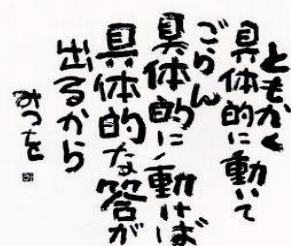 ともかく
具体的に動いて
ごらん
具体的に動けば
具体的な答が
出るから
みつを